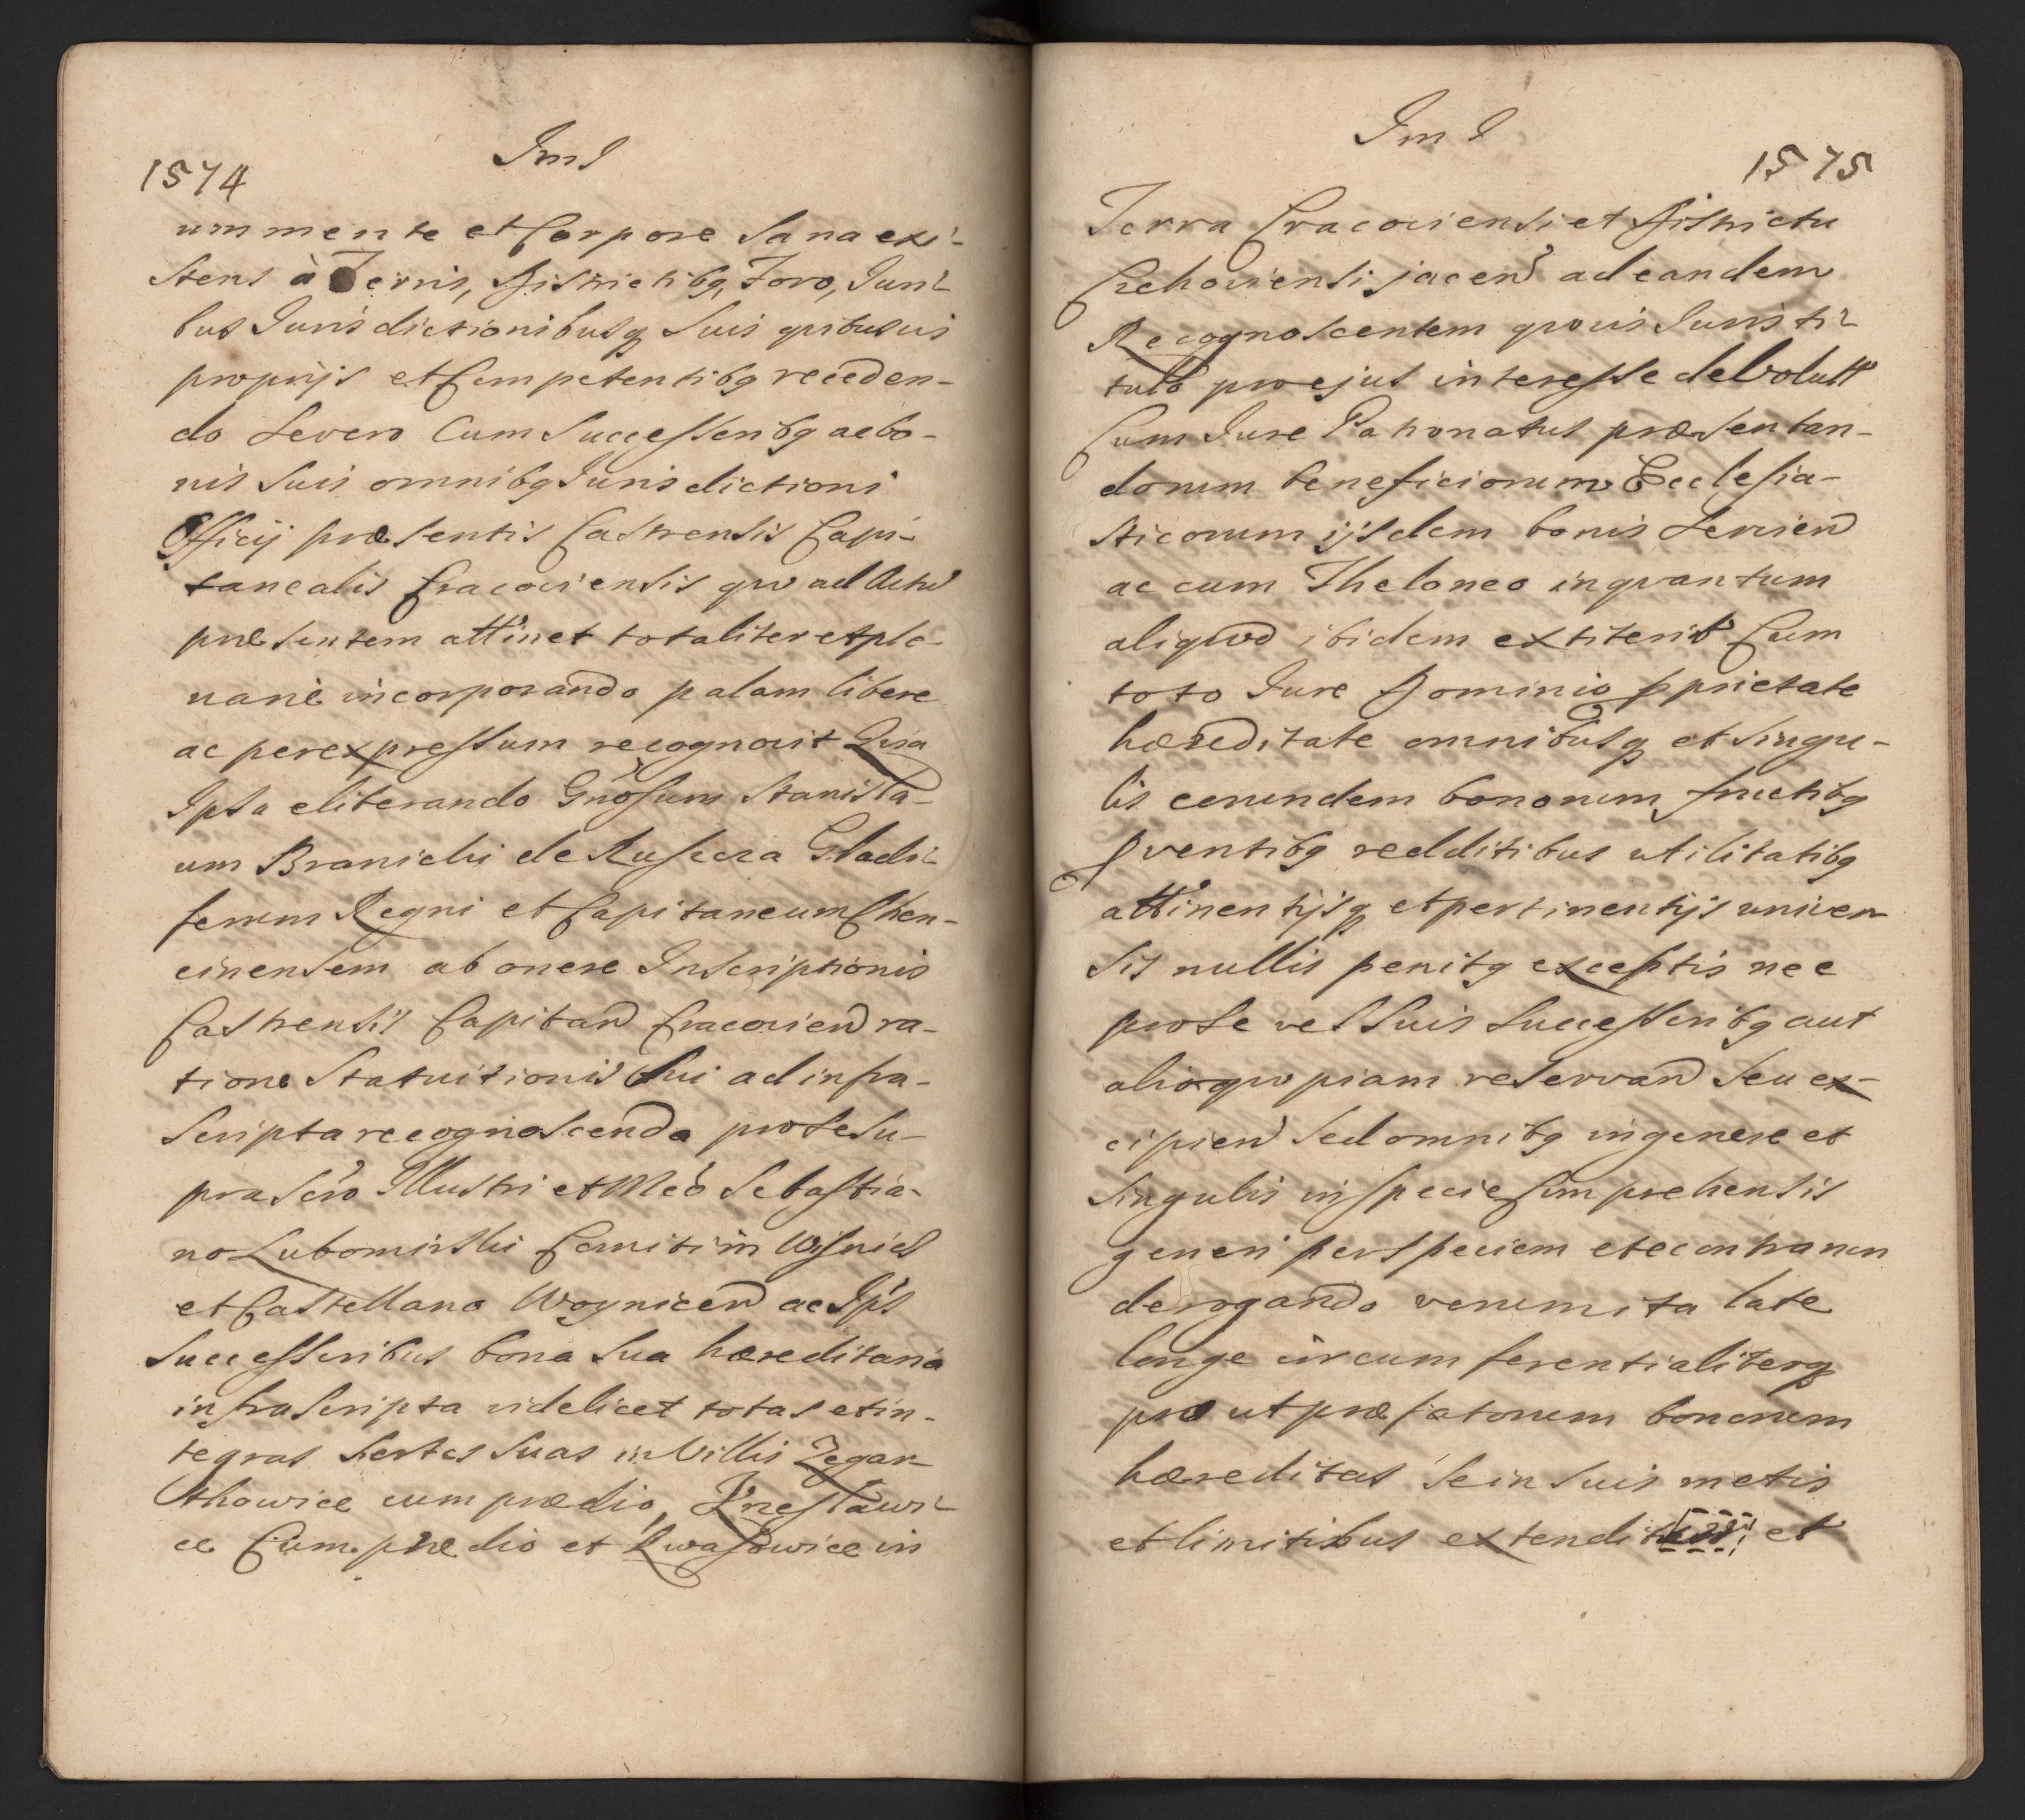 Im I
1574
um mente et Corpore Sana exi-
stens à Terris, Districtibq, Foro, Juri-
bus Jurisdictionibusq Suis qvibusvis
proprijs et Competentibq receden-
do Severo Cum Successoribq ac bo-
nis Suis omnibq Jurisdictioni
Officij præsentis Castrensis Capi-
tanealis Cracoviensis qvo ad Actū
præsentem attinet totaliter et ple-
nariè incorporando palam libere
ac per expressum recognovit Qvia
Ipsa eliberando Gnosum Stanisla-
um Branicki de Ruscza Gladi-
ferum Regni et Capitaneum Chen-
cinensem ab onere Inscriptionis
Castrensis Capitan Cracovien ra-
tione Statuitionis Sui ad infra-
Scripta recognoscenda pro se Su-
prascro Illustri et Mco Sebastia-
no Lubomirski Comiti in Wisnicz
et Castellano Woynicen ac Ips
Successoribus bona Sua hæreditaria
infrascripta videlicet totas et in-
tegras Sortes Suas in Villis Zegar-
thowice cum prædio, Krzesławi-
ce Cum prædio et Kwasowice in
Im I
1575
Terra Cracoviensi et Districtu
Czchoviensi jacen ad eandem
Recognoscentem qvovis Juris ti-
tulo pro ejus interesse devolutt
Cum Jure Patronatus præsentan-
dorum beneficiorum Ecclesia-
sticorum ijsdem bonis Servien
ac cum Theloneo inqvantum
aliqvod ibidem extiterit Cum
toto Jure Dominio pprietate
hæreditate omnibusq et Singu-
lis eorundem bonorum fructibq
pventibq redditibus utilitatibq
attinentijsq et pertinentijs univer-
sis nullis penitq exceptis nec
pro se vel Suis Successoribq aut
alio qvopiam reservan Seu ex-
cipien Sed omnibq in genere et
Singulis in Specie Comprehensis
generi per Speciem et econtrarum
derogando verum ita late
longe circumferentialiterq
pro ut præfatorum bonorum
hæreditas Se in Suis metis
et limitibus extendit et